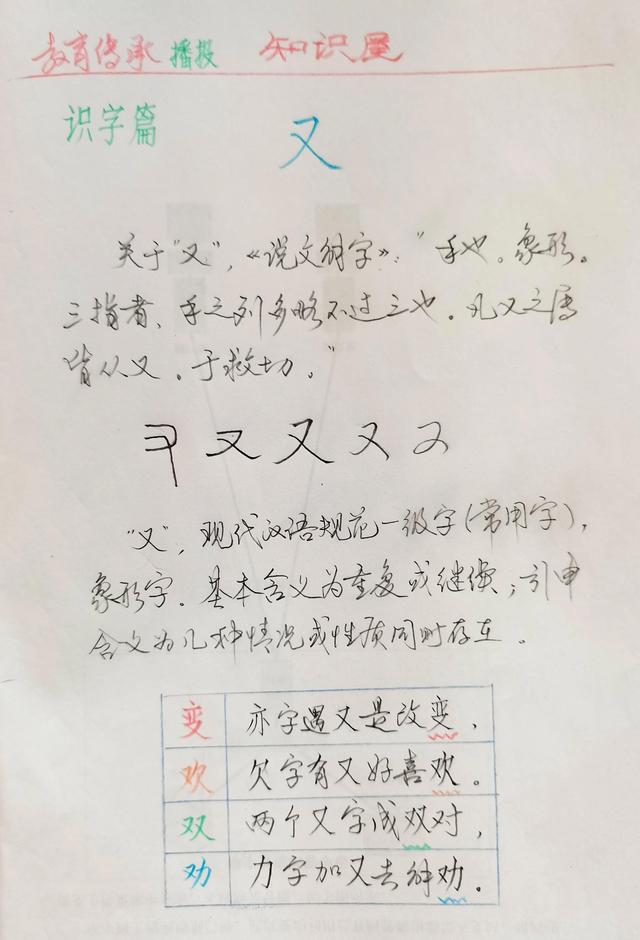 教育传承播报 知识屋
识字篇
又
关于"又",《说文解字》:"手也。象形。
三指者,手之列多略不过三也。凡又之属
皆从又。于救切。"
又 又 又 又
"又",现代汉语规范一级字(常用字),
象形字。基本含义为重复或继续;引申
含义为几种情况或性质同时存在。
变 亦字遇又是改变,
欢 欠字有又好喜欢。
双 两个又字成双对,
劝 力字加又去解劝。